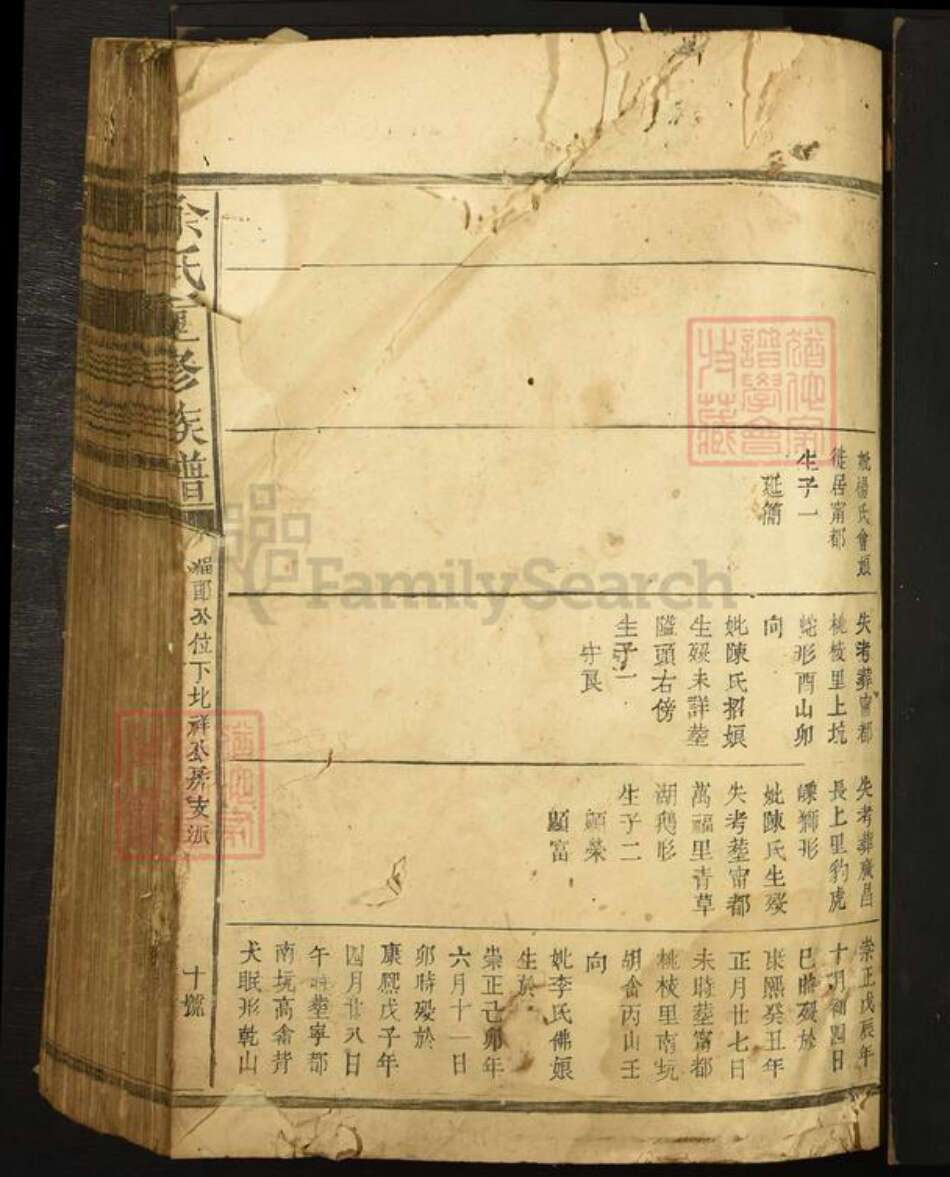 妣楊氏會娘
徙居甯都
生子一
延簡
失考葬甯都
桃枝里上坑
蛇形酉山卯
向
妣陳氏招娘
生歿未詳塟
隘頭右傍
生子一
守良
失考葬廣昌
長上里豹虎
嵊獅形
妣陳氏生歿
失考塟甯都
萬福里青草
湖鵝形
生子二
顯榮
顯富
崇正戊辰年
十月初四日
巳時歿於
康熙癸丑年
正月廿七日
未時塟甯都
桃枝里南坑
胡畲丙山壬
向
妣李氏佛娘
生於
崇正己卯年
六月十一日
卯時歿於
康熙戊子年
四月廿八日
午時塟寧都
南坑高畲背
犬眠形乾山
余氏重修族譜
福郎公位下北祥公房支派
十號
譜學會
收藏
FamilySearch